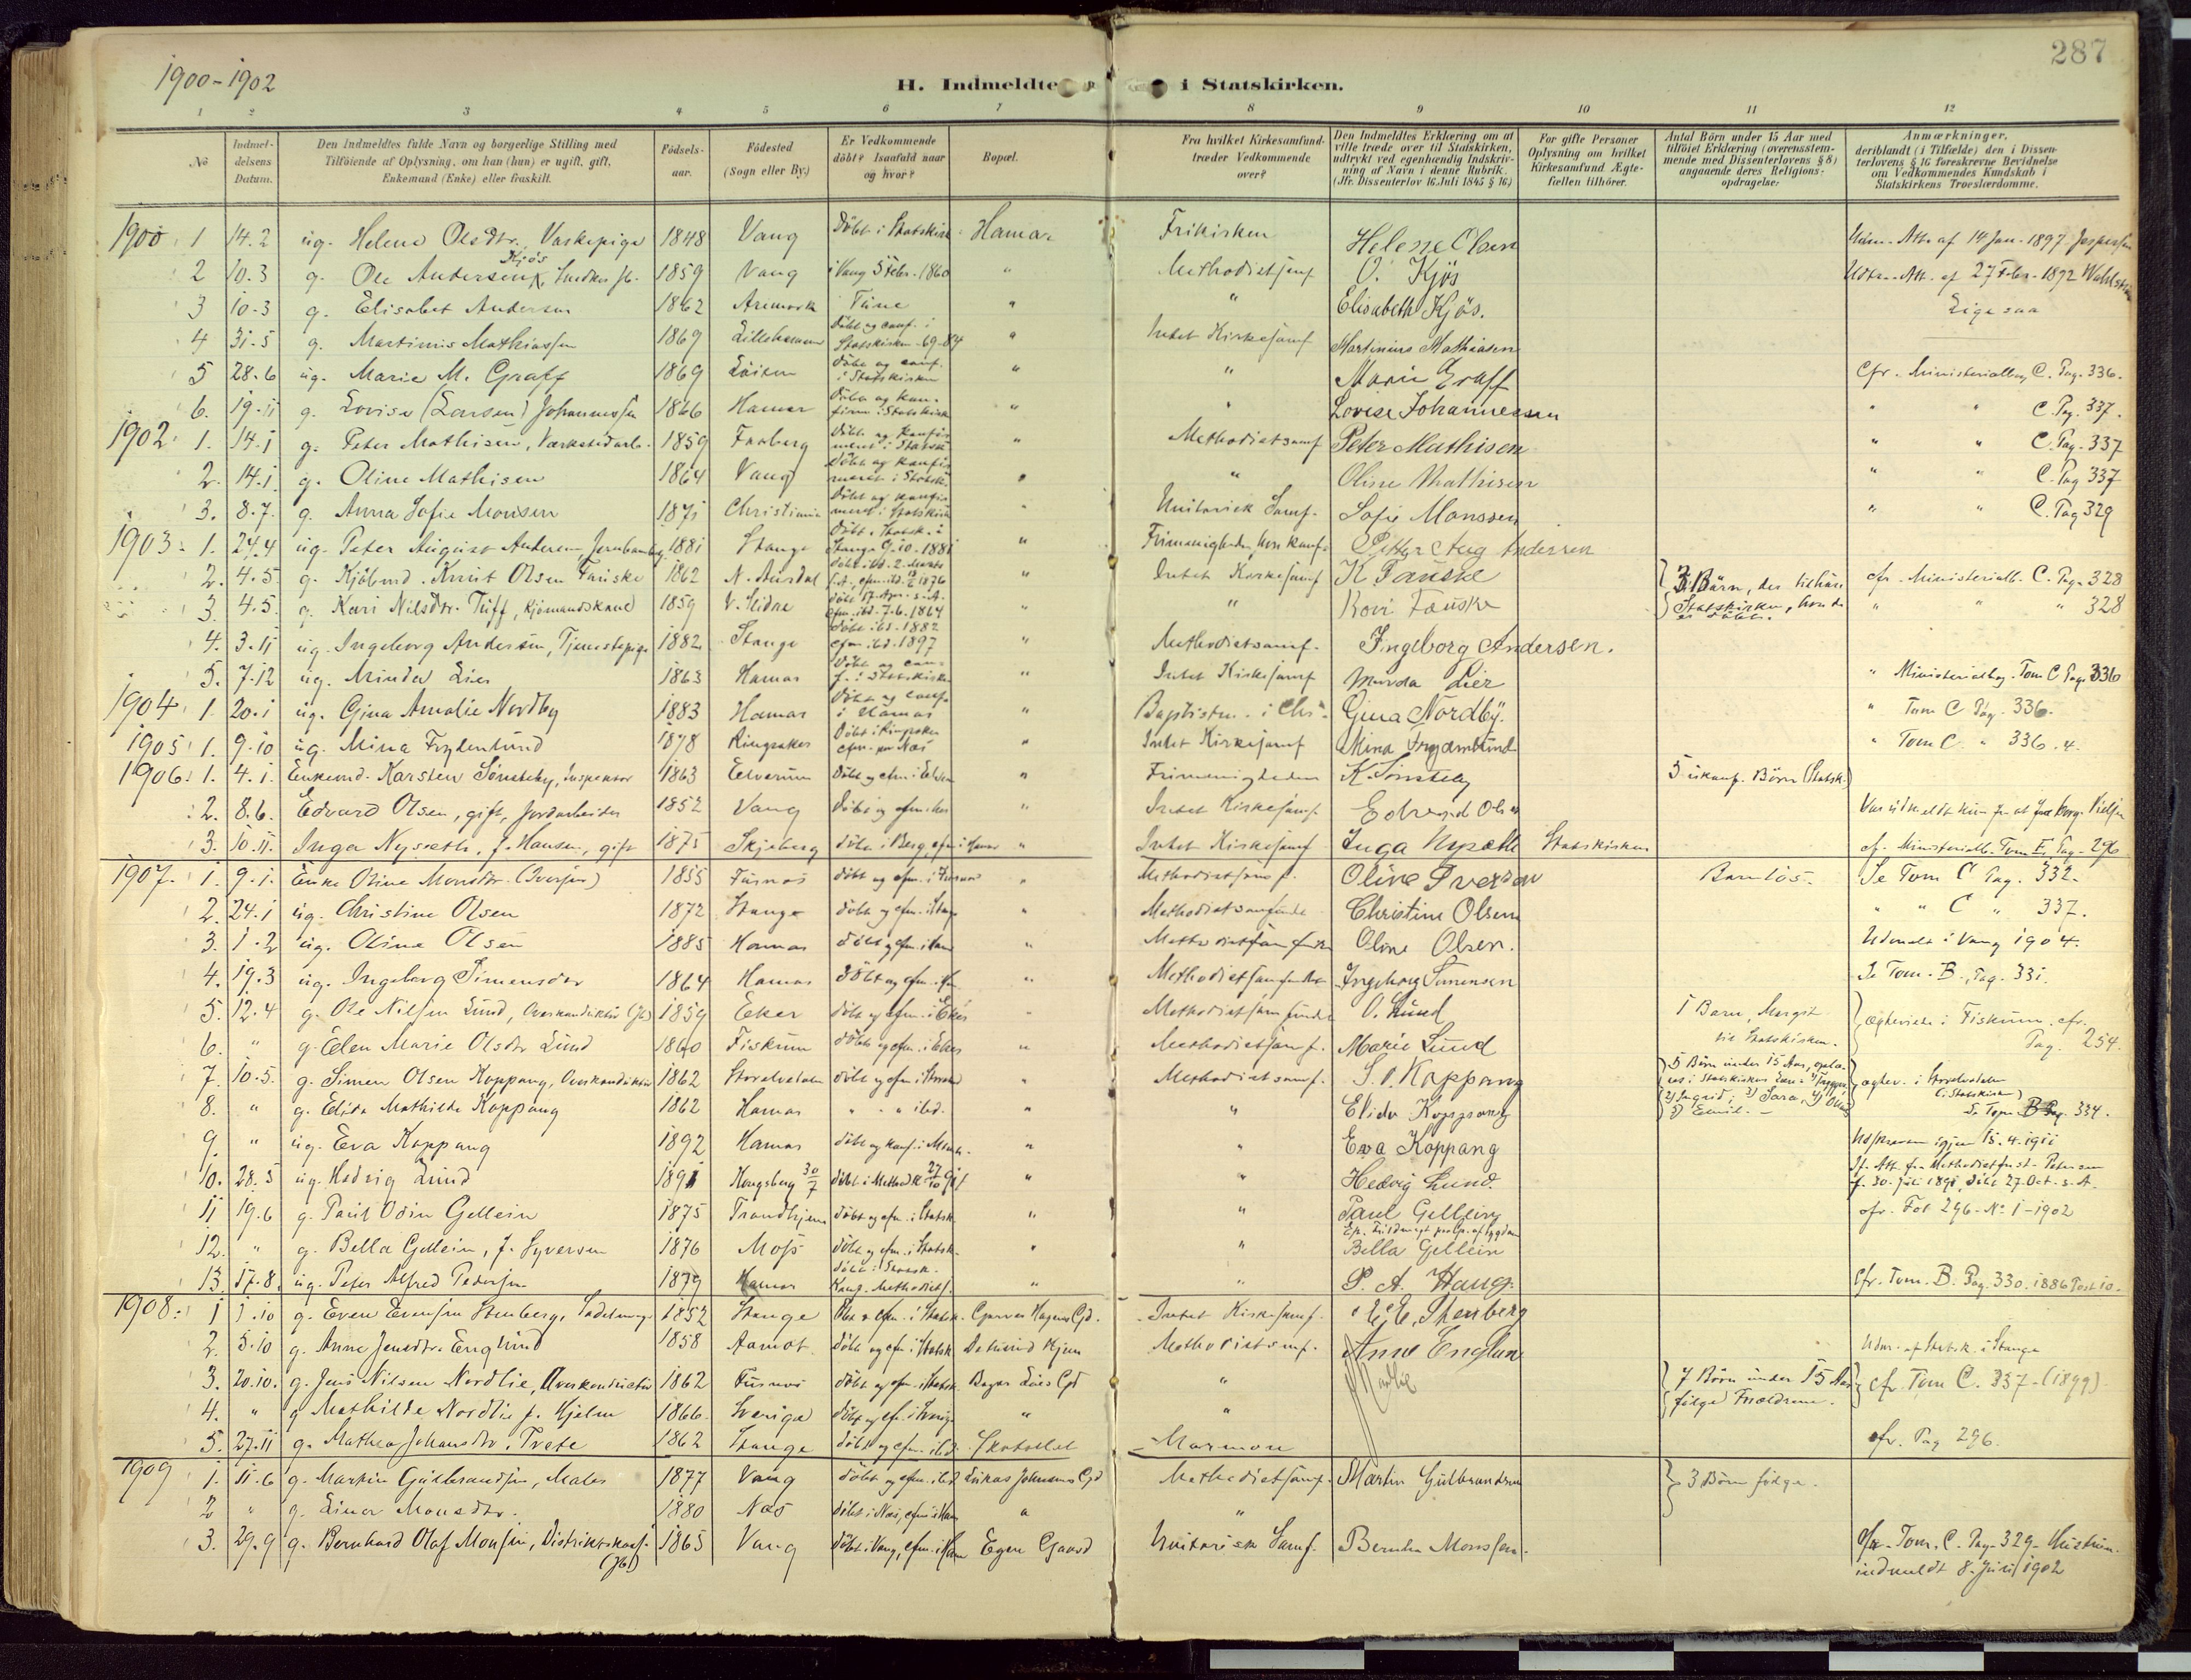 287
1900-1902
H. Indmeldte i Statskirken.
1 2 3 4 5 6 7 8 9 10 11 12
No
Indmeldelsens Datum.
Den Indmeldtes fulde Navn og borgerlige Stilling med Tilföiende af Oplysning, om han (hun) er ugift, gift, Enkemand (Enke) eller fraskilt.
Födselsaar.
Födested (Sogn eller By.)
Er Vedkommende döbt? Isaafald naar og hvor?
Bopæl.
Fra hvilket Kirkesamfund træder Vedkommende over?
Den Indmeldtes Erklæring om at ville træde over til Statskirken, udtrykt ved egenhændig Indskrivning af Navn i denne Rubrik. (Jfr. Dissenterlov 16. Juli 1845 § 16.)
For gifte Personer Oplysning om hvilket Kirkesamfund Ægtefællen tilhörer.
Antal Börn under 15 Aar med tilföiet Erklæring (overensstemmende med Dissenterlovens § 8) angaaende deres Religionsopdragelse:
Anmærkninger, deriblandt (i Tilfælde) den i Dissenterlovens § 16 foreskrevne Bevidnelse om Vedkommendes Kundskab i Statskirkens Troeslærdomme.
1900 1 14.2 ug. Helene Olsdtr. Vaskepige 1848 Vang Döbt i Statskirk Hamar Frikirken Helene Olsen Udm. Att. af 14 Jan. 1897
2 10.3 g. Ole Andersen Kjös 1859 Vang i Vang 5 Febr. 1860 " Methodistsamf O. Kjös Udtr. Att. af 27 Febr. 1892
3 10.3 g. Elisabet Andersen 1862 Aremark Tune " " Elisabeth Kjös. Ligesaa
4 31.5 g. Martinius Mathiassen 1869 Lillehammer Döbt og conf. i Statskirken 69-84 " Intet Kirkesamf Martinius Mathiasen
5 28.6 ug. Marie M. Graff 1869 Löiten Döbt og conf. i Statskirken " " Marie Graff Cfr. Ministerialbog C. Pag. 336.
6. 19.11 g. Lovise (Larsen) Johannessen 1866 Hamar " " Lovise Johannessen " " C. Pag. 337.
1902 1. 14.1 g. Peter Mathisen, Værkstedarb. 1859 Faaberg Döbt og konfirmeret i Statsk " Methodistsamf Peter Mathisen " " C. Pag. 337
2. 14.1 g. Oline Mathisen 1864 Vang Döbt og konfirmeret i Statsk. " " Oline Mathisen " " C. Pag 337
3. 8.7. g. Anna Sofie Monsen 1871 Christiania Döbt og konfirmeret i Statskirk " Unitarisk Samf. Sofie Monssen " " C. Pag 329
1903: 1. 24.4 ug. Peter August Andersen, 1881 Stange Döbt i Statsk. i Stange 9.10.1881 " Petter Aug Andersen
2. 4.5. g. Kjöbmd. Knut Olsen Fauske 1862 N. Aurdal " Intet Kirkesamf K Fauske 3 Börn, der tilhöre Statskirken, cfr. Ministerialb. C. Pag. 328
3. 4.5. g. Kari Nilsdtr. Tuff, Kjömandskone 1859 V. Slidre " " Kari Fauske " " " 328
4. 3.11 ug. Ingeborg Andersen, Tjenestepige 1882 Stange döbt ibd. 1882 cfm. ibd. 1897 " Methodistsamf. Ingeborg Andersen.
5. 7.12 ug. Minda Lier 1863 Hamar " Intet Kirkesamf Minda Lier " Ministerialbog. Tom C Pag. 336
1904 1. 20.1 ug. Gina Amalie Nordby 1883 Hamar Döbt og conf. i Hamar " Baptistm. i Chr. Gina Nordby. " Tom C Pag. 336.
1905: 1. 9.10 ug. Mina Frydenlund 1878 Ringsaker " Intet Kirkesamf Mina Frydenlund " Tom C. " 336.4.
1906: 1. 4.1. Enkemd. Karsten Sönsteby, Inspektör 1863 Elverum " Frimenigheden K. Sönsteby 5 ukonf. Börn (Statsk.)
2. 8.6. Edvard Olsen, gift, Jordarbeider 1852 Vang " Intet Kirkesamf Edvard Olsen
3. 10.11. Inga Nysæth, f. Hansen, gift 1875 Skjeberg döbt i Berg, cfm. i Hamar " Intet Kirkesamf Inga Nysæth Statskirken cf. Ministerialb. Tom E. Pag. 296
1907. 1. 9.1. Enke Oline Monsdtr. (Iversen) 1855 Furnes döbt og cfm. i Furnes " Methodistsamf. Oline Iversen Barnlös. Se Tom C Pag. 332.
2. 24.1 ug. Christine Olsen 1872 Stange döbt og cfm. i Stange " Methodistsamfundet Christine Olsen " " C " 337.
3. 1.2 ug. Oline Olsen 1885 Hamar " Methodistsamfundet Oline Olsen. Udmeldt i Vang 1904.
4. 19.3 ug. Ingeborg Simensdtr 1864 Hamar " Methodistsamfundet Ingeborg Simensen Se Tom. B., Pag. 331.
5. 12.4 g. Ole Nilsen Lund, Overkonduktör (Jb) 1859 Eker döbt og cfm. i Eker " Methodistsamfundet O. Lund 1 Barn, Margit til Statskirken. ægteviede i Fiskum, cfr. Pag. 254.
6. " g. Elen Marie Olsdtr Lund 1860 Fiskum döbt og cfm. i Eker " Methodistsamf. Marie Lund
7. 10.5. g. Simen Olsen Koppang, Overkonduktör 1862 Storelvdalen " Methodistsamf. S. O. Koppang 5 Börn under 15 Aar, ægtev. i Storelvdalen
8. " g. Elida Mathilde Koppang 1862 Hamar " " " ibd. " " Elida Koppang 2) Ingrid, 3) Sara, 5) Emil. Se Tom. B Pag. 334.
9. " ug. Eva Koppang 1892 Hamar " " Eva Koppang igjen 15.4.1911
10. 28.5 ug. Hedvig Lund 1891 Kongsberg 30/7 " " Hedvig Lund. f. 30. Juli 1891, döbt 27. Oct. s. A.
11 19.6 g. Paul Odin Gellein 1875 Trondhjem döbt og cfm. i Statsk " " Paul Gellein cfr. Fol 296. No 1-1902
12. " g. Bella Gellein, f. Syversen 1876 Moss döbt og cfm. i Statsk. " " Bella Gellein
13. 17.8. ug. Peter Alfred Pedersen 1879 Hamar döbt i Statsk. Konf. Methodist. " " P. A. Haug. Cfr. Tom. B. Pag. 330. 1886 Post 10.
1908: 1 1.10 g. Even Evensen Stenberg, Sadelmager 1852 Stange Intet Kirkesamf. E. E. Stenberg
2. 5.10 g. Anne Jensdtr. Englund 1858 Aamot döbt og cfm. i Statsk Methodistsamf. Anne Englund Udm. af Statsk. i Stange
3. 20.10. g. Jens Nilsen Nordlie, Overkonduktör 1862 Furnes döbt og cfm. i Statsk. " Nordlie 7 Börn under 15 Aar fölge Forældrene. cfr. Tom C. 337-(1899)
4. " g Mathilde Nordlie f. Hjelm 1866. Sverige " "
5. 27.11 g. Mathea Johansdtr. Trete 1862 Stange döbt og cfm. ibd. Mormon cfr. Pag 296.
1909 1. 11.6 g. Martin Gulbrandsen, Maler 1877 Vang döbt og cfm. ibd Methodistsamf. Martin Gulbrandsen 3 Börn fölge.
2 " g. Monsdtr. 1880 Næs " "
3. 29.9 g. Bernhard Olaf Monsen, (Jb) 1865 Vang Egen Gaard Unitarisk Samf. Monssen. Cfr. Tom. C. Pag. 329. Hustruen indmeldt 8. Juli 1902